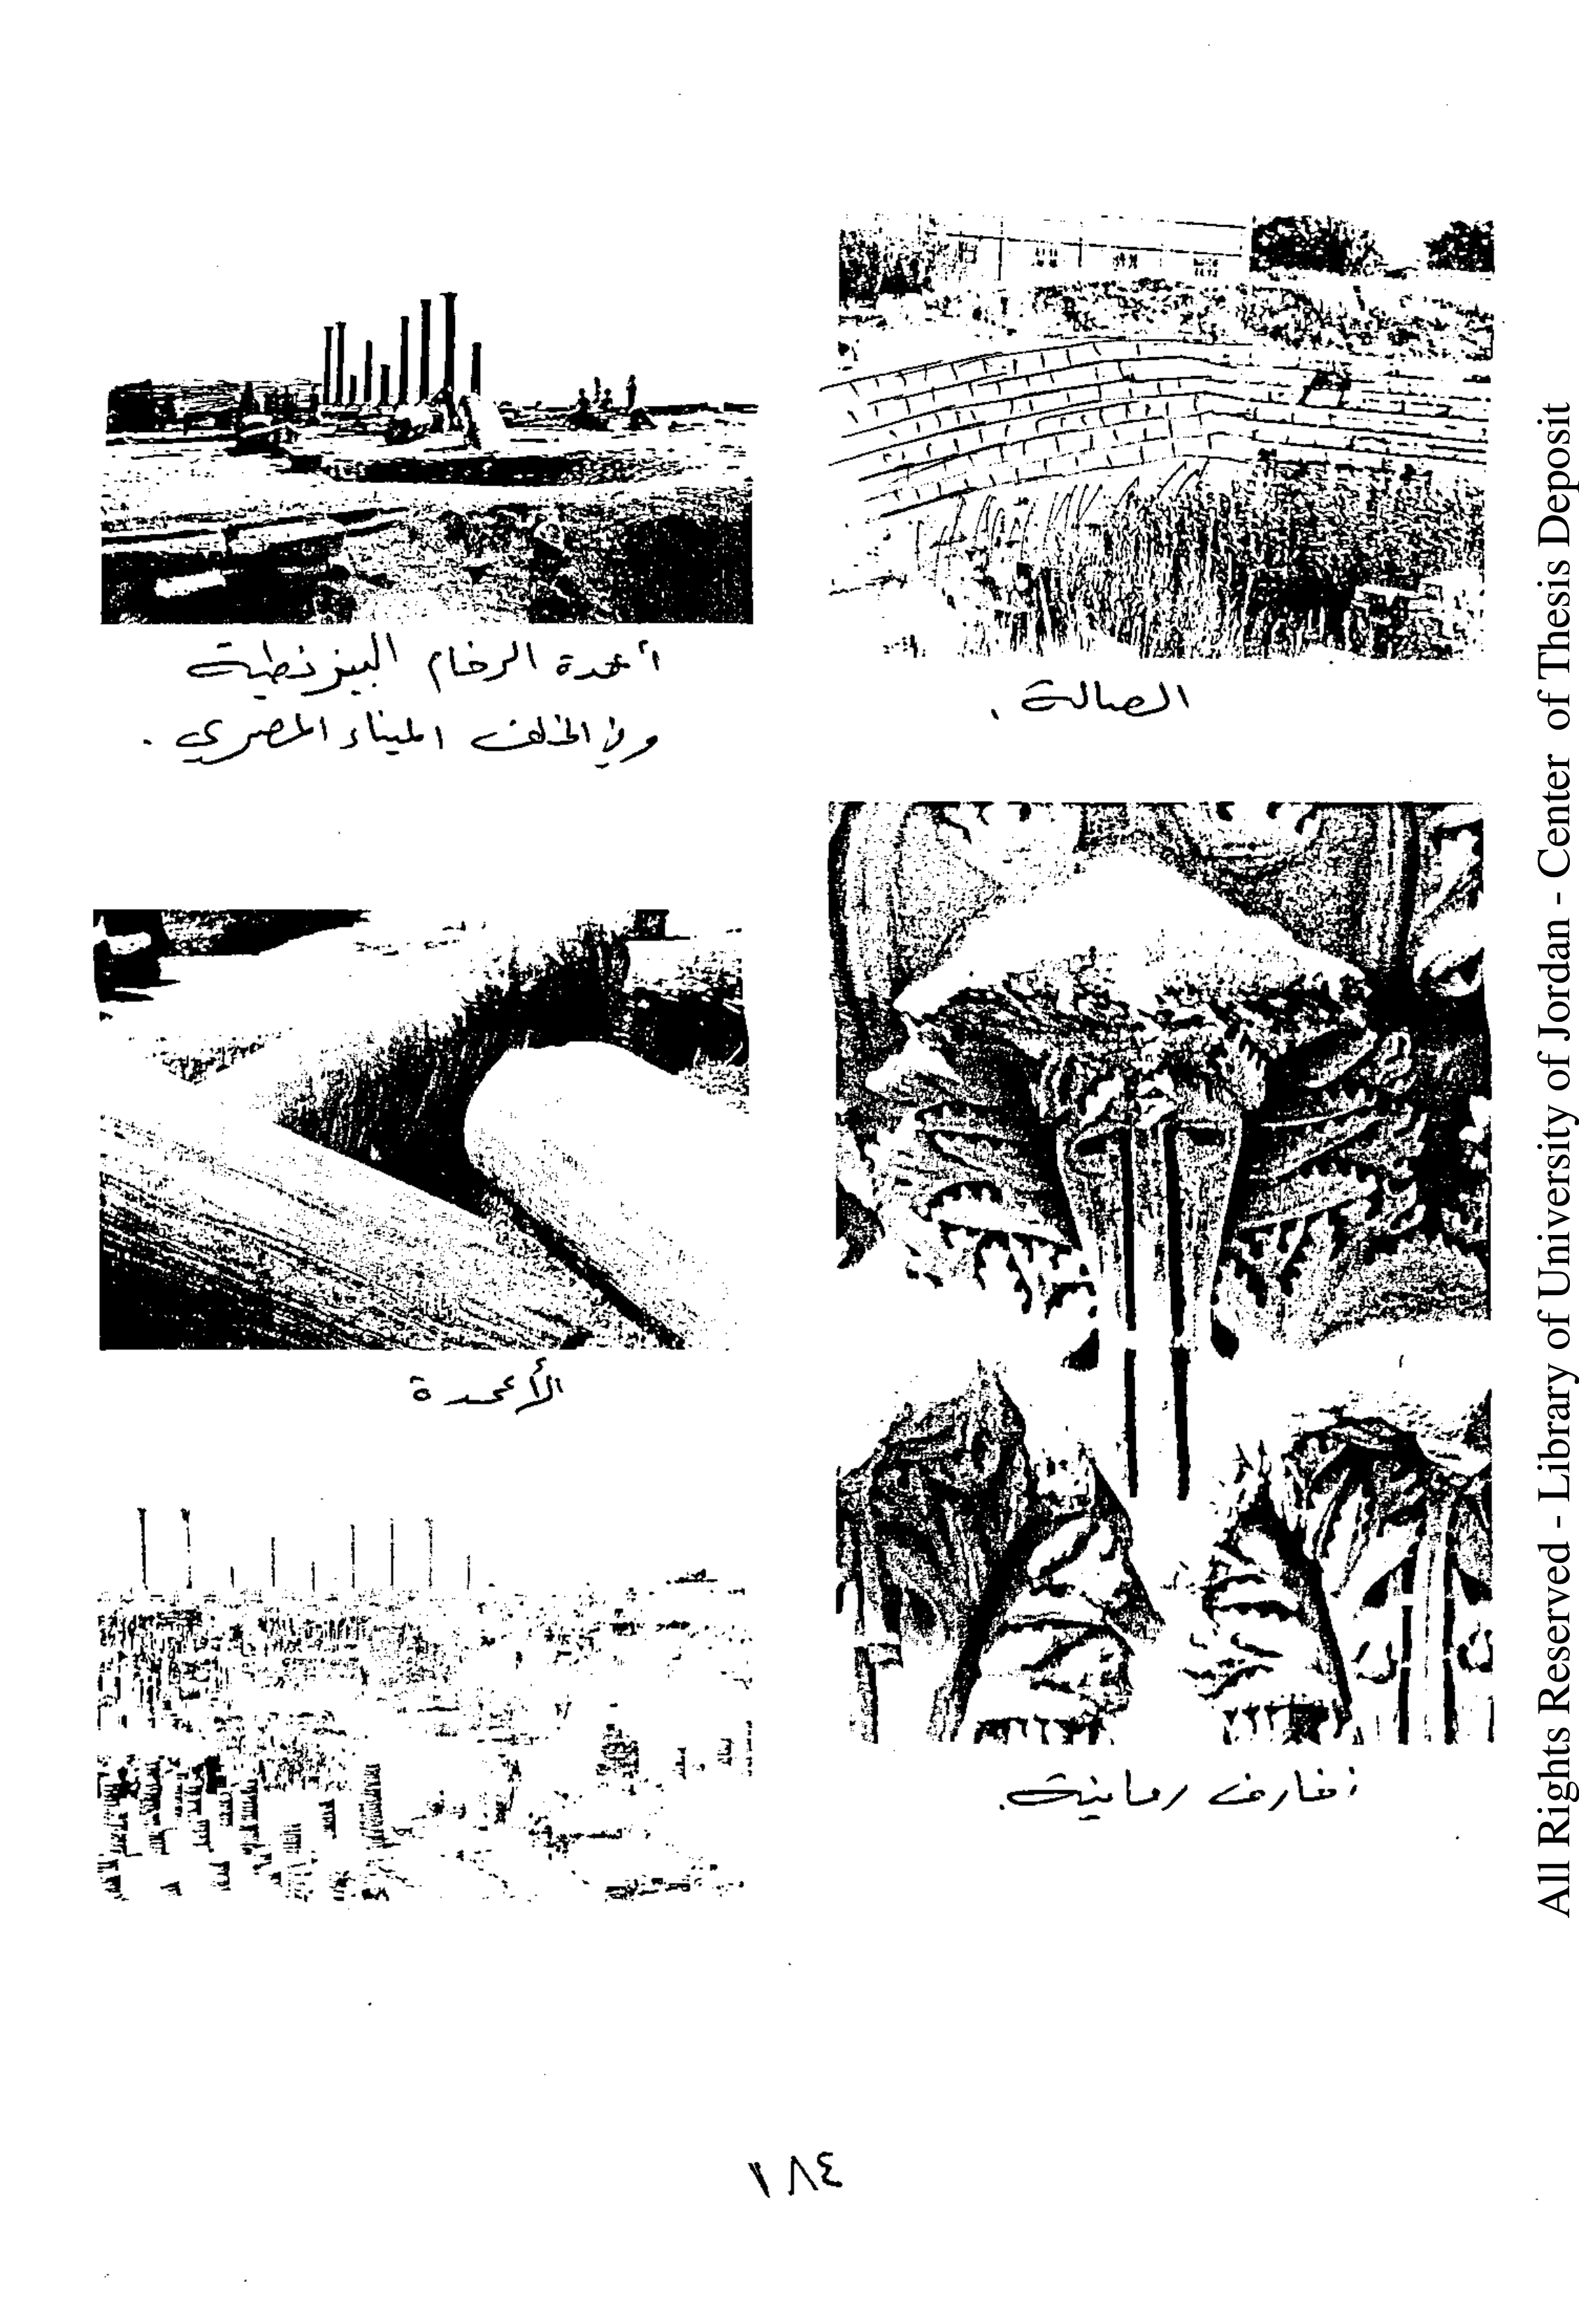 الصالة .
أعمدة الرخام البيزنطية
وفي الخلف الميناء المصري .
زخارف رمانية.
الأعمدة
١٨٤
All Rights Reserved - Library of University of Jordan - Center of Thesis Deposit